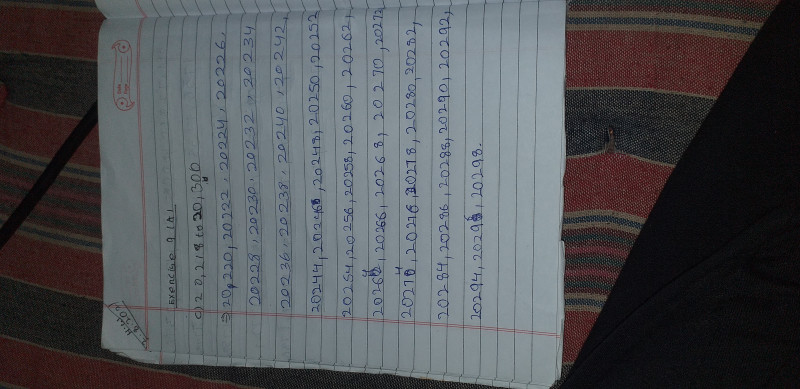 H.W
Exercise 9 (A)
c) 20,218 to 20,300
⇒ 20,220, 20222, 20224, 20226,
20228, 20230, 20232, 20234
20236, 20238, 20240, 20242,
20244, 20246, 20248, 20250, 20252
20254, 20256, 20258, 20260, 20262,
20264, 20266, 20268, 20270, 20272
20274, 20276, 20278, 20280, 20282,
20284, 20286, 20288, 20290, 20292,
20294, 20296, 20298.